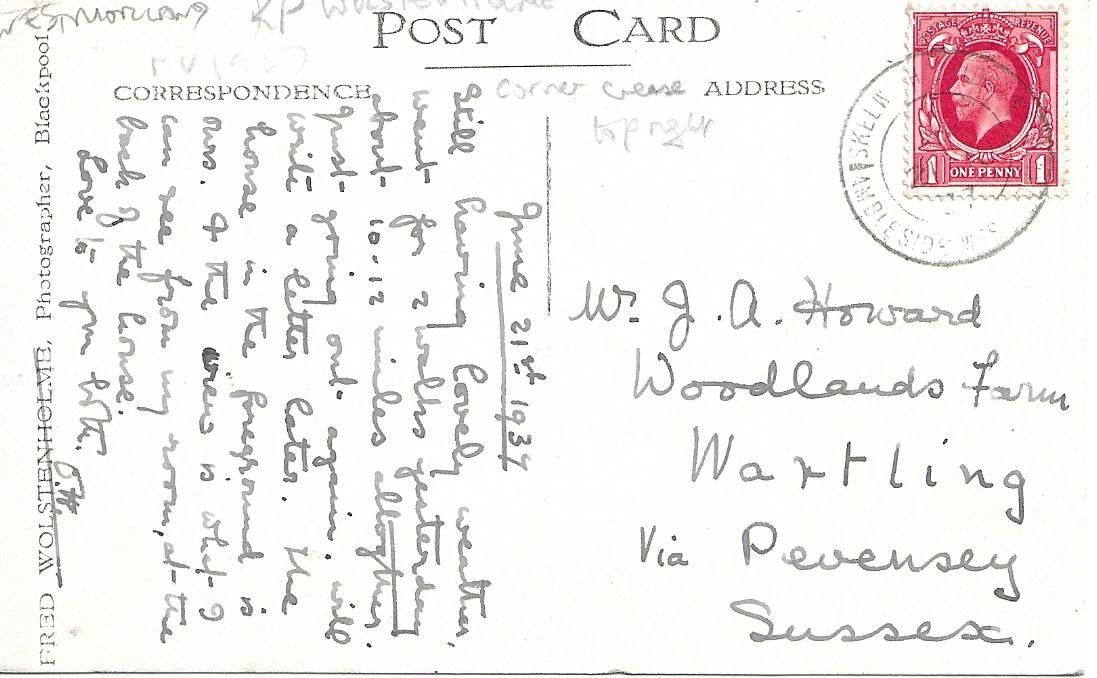 WESTMORLAND RP WOLSTENHOLME
POST CARD
PU 1937
CORRESPONDENCE
corner crease
top right
ADDRESS
POSTAGE REVENUE
1 ONE PENNY 1
SKELW
AMBLESIDE
FRED WOLSTENHOLME, Photographer, Blackpool
June 21st 1937
Still having lovely weather.
went for 2 walks yesterday
about 10-12 miles altogther.
Just going out again, will
write a letter later. The
house in the foreground is
ours. & the view is what I
can see from my room, at the
back of the house.
Love to you both.
Mr. J. A. Howard
Woodlands Farm
Wartling
Via Pevensey
Sussex.